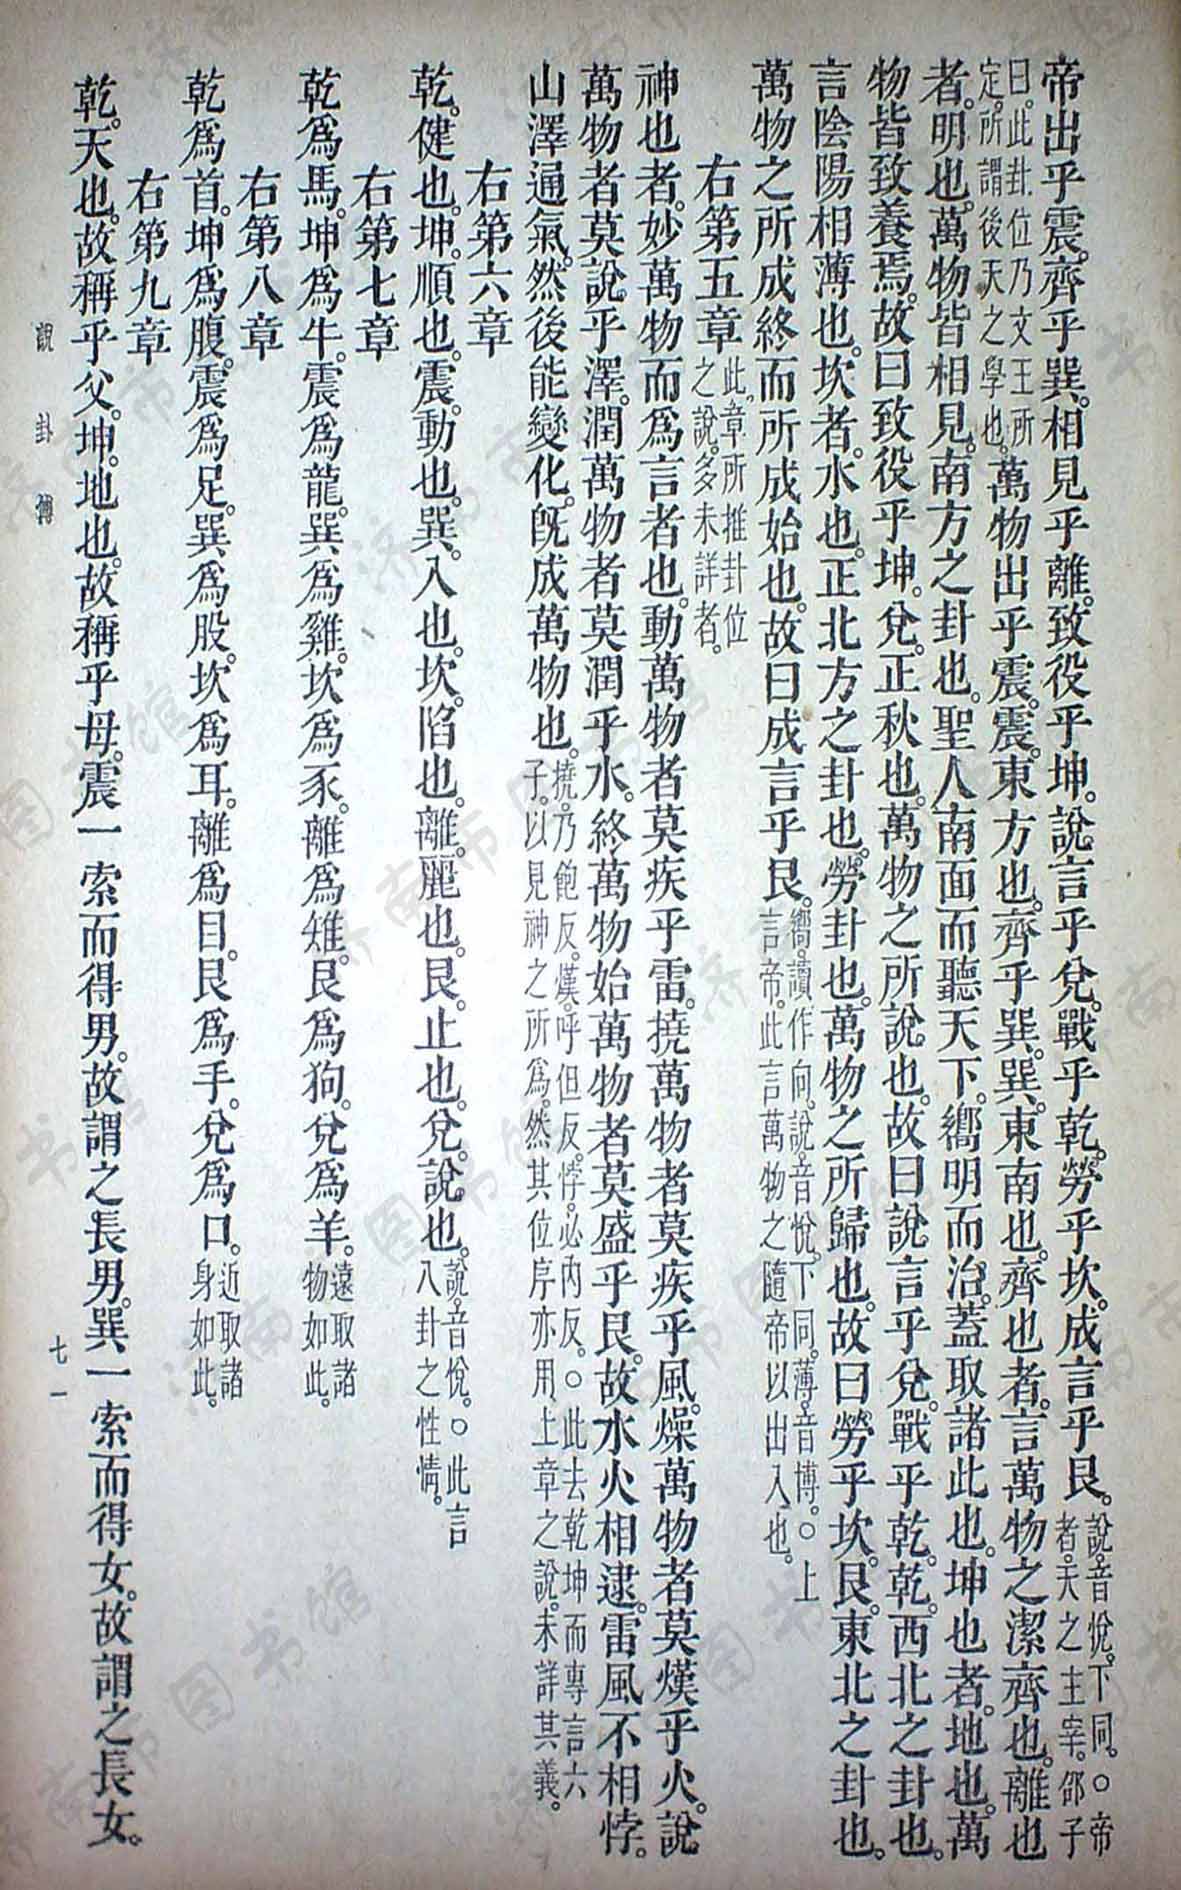 帝出乎震。齊乎巽。相見乎離。致役乎坤。說言乎兌。戰乎乾。勞乎坎。成言乎艮。說。音悅。下同。○帝者。天之主宰。邵子
曰。此卦位乃文王所定。所謂後天之學也。萬物出乎震。震。東方也。齊乎巽。巽。東南也。齊也者。言萬物之潔齊也。離也
者。明也。萬物皆相見。南方之卦也。聖人南面而聽天下。嚮明而治。蓋取諸此也。坤也者。地也。萬
物皆致養焉。故曰致役乎坤。兌。正秋也。萬物之所說也。故曰說言乎兌。戰乎乾。乾。西北之卦也。
言陰陽相薄也。坎者。水也。正北方之卦也。勞卦也。萬物之所歸也。故曰勞乎坎。艮。東北之卦也。
萬物之所成終而所成始也。故曰成言乎艮。嚮。讀作向。說。音悅。下同。薄。音博。○上言帝。此言萬物之隨帝以出入也。
右第五章 此章所推卦位之說。多未詳者。
神也者。妙萬物而爲言者也。動萬物者莫疾乎雷。撓萬物者莫疾乎風。燥萬物者莫熯乎火。說
萬物者莫說乎澤。潤萬物者莫潤乎水。終萬物始萬物者莫盛乎艮。故水火相逮。雷風不相悖。
山澤通氣。然後能變化。旣成萬物也。撓。乃飽反。熯。呼但反。悖。必內反。○此去乾坤而專言六子。以見神之所爲。然其位序亦用上章之說。未詳其義。
右第六章
乾。健也。坤。順也。震。動也。巽。入也。坎。陷也。離。麗也。艮。止也。兌。說也。說。音悅。○此言八卦之性情。
右第七章
乾爲馬。坤爲牛。震爲龍。巽爲雞。坎爲豕。離爲雉。艮爲狗。兌爲羊。遠取諸物如此。
右第八章
乾爲首。坤爲腹。震爲足。巽爲股。坎爲耳。離爲目。艮爲手。兌爲口。近取諸身如此。
右第九章
乾。天也。故稱乎父。坤。地也。故稱乎母。震一索而得男。故謂之長男。巽一索而得女。故謂之長女。
說卦傳
七一